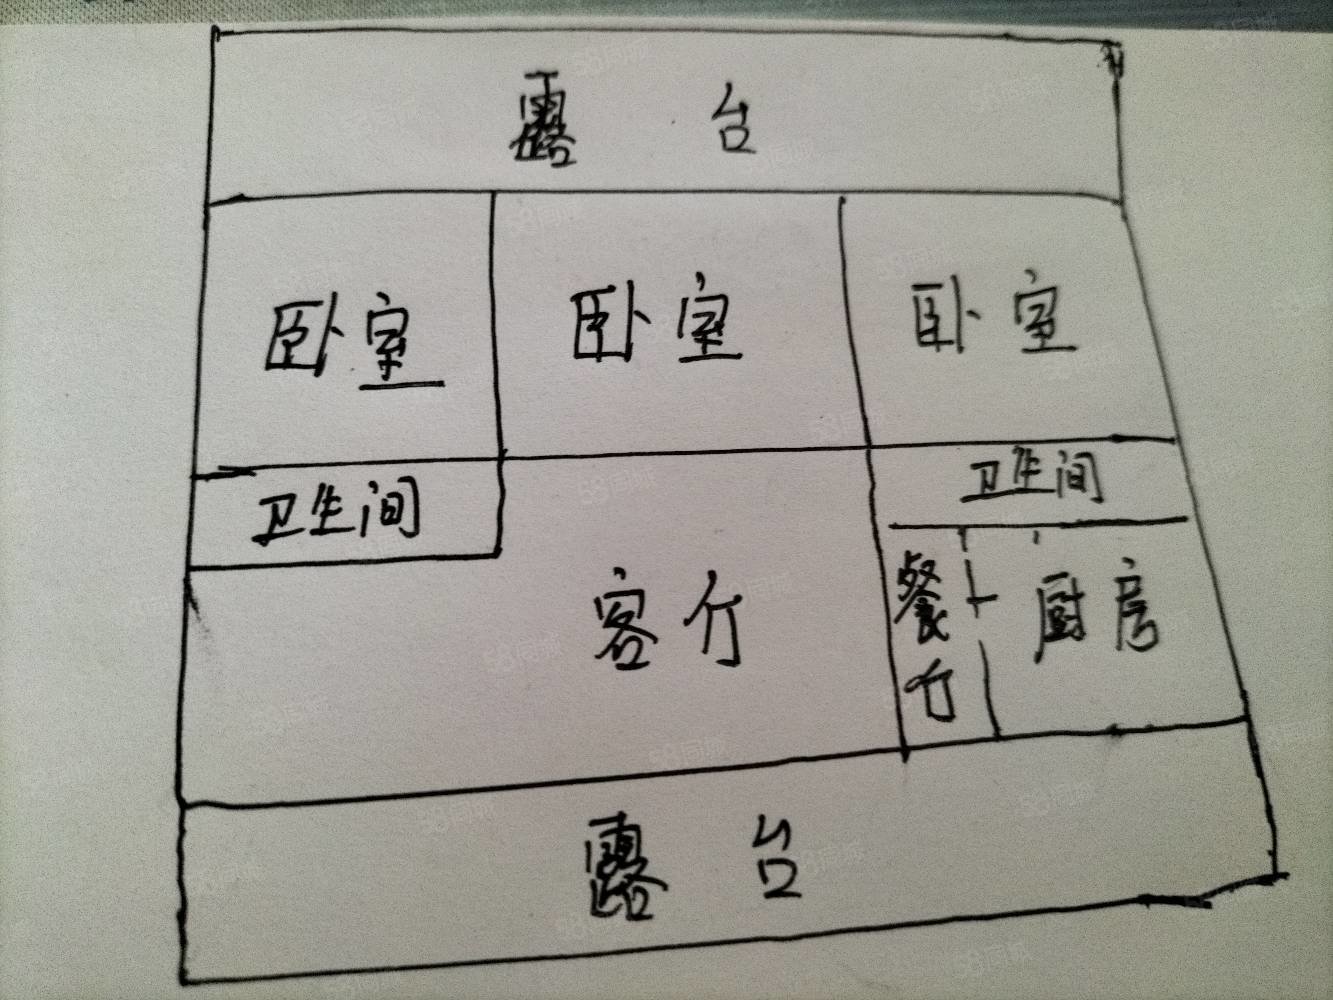 露台
卧室 卧室 卧室
卫生间 卫生间
客厅 餐厅 厨房
露台
58同城